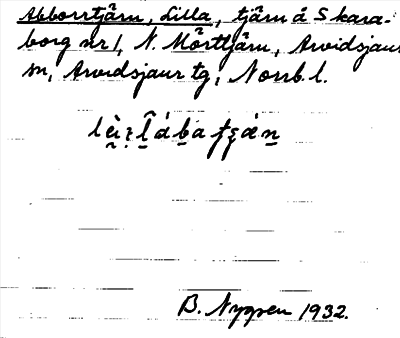 Abborrtjärn, Lilla, tjärn å Skara-
borg nr 1, N. Mörttjärn, Arvidsjaur
sn, Arvidsjaur tg, Norrb. l.
B. Nygren 1932.